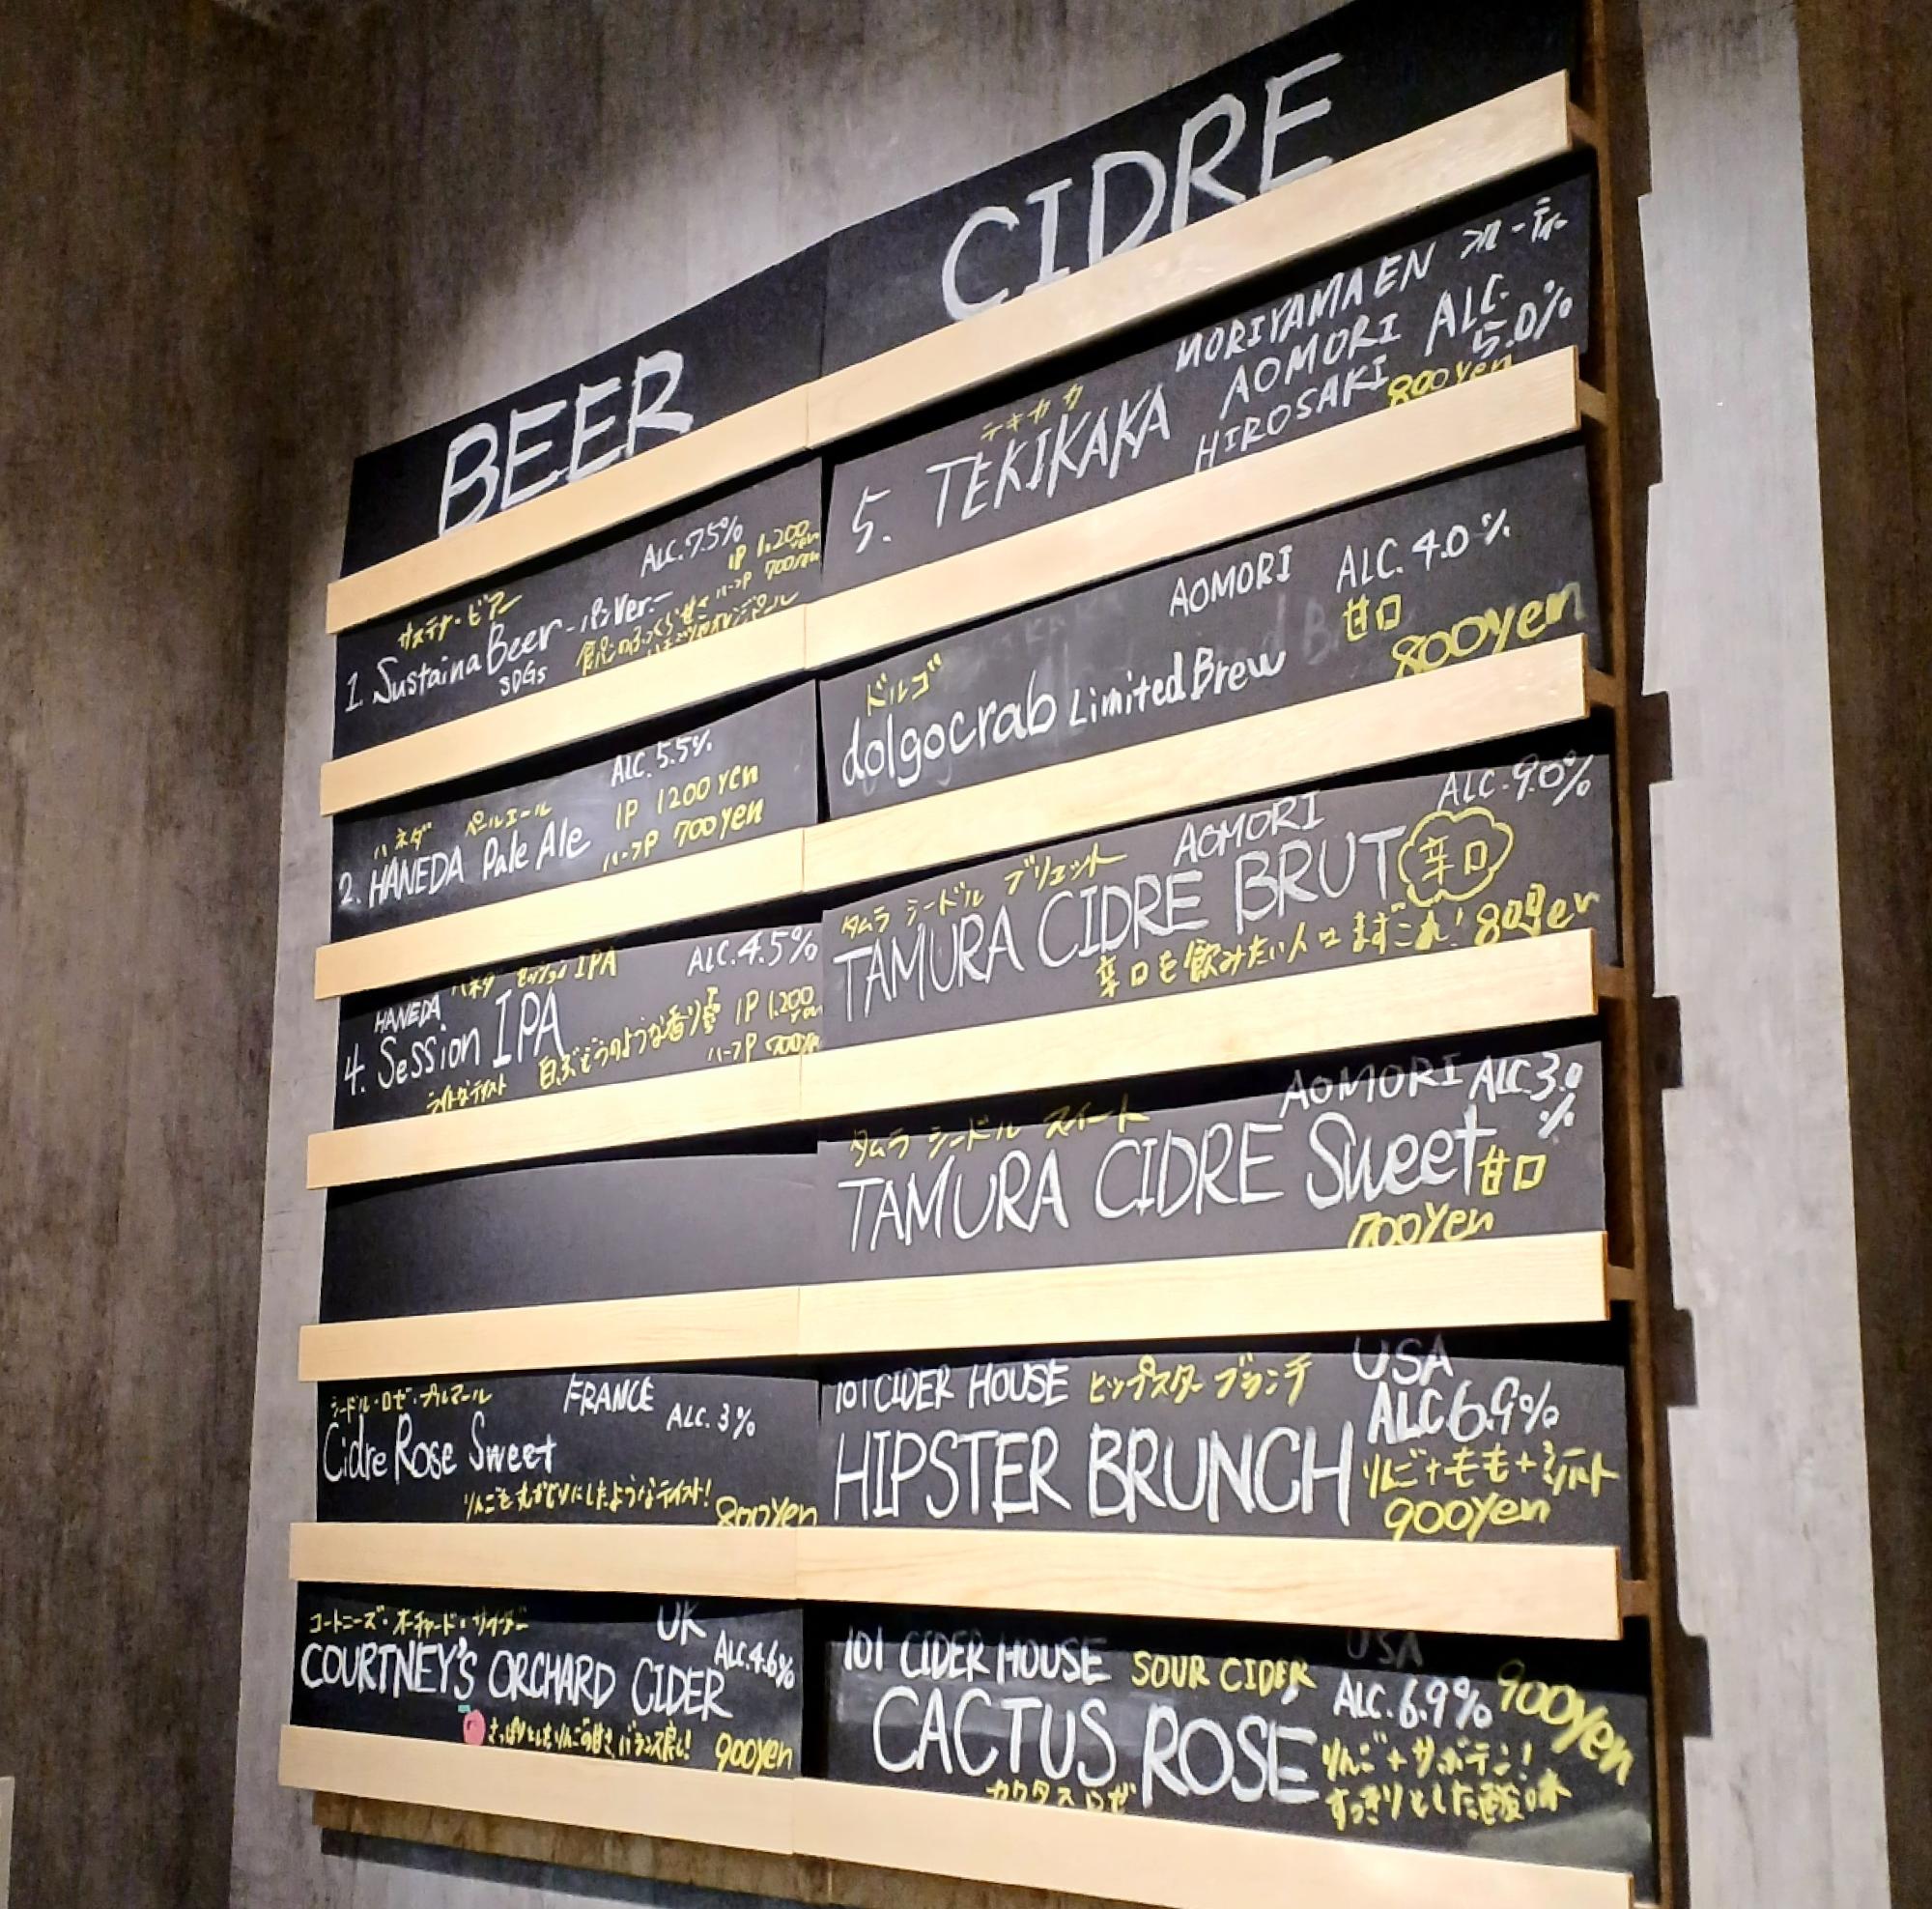 BEER
サステナ・ビアー
ALC.7.5%
1P 1.200yen
ハーフP 700yen
1. SustainaBeer -パンVer.-
SDGs
ALC.5.5%
ハネダ ペールエール
1P 1200yen
2. HANEDA Pale Ale
ハーフP 700yen
ハネダ セッションIPA
ALC.4.5%
HANEDA
4. Session IPA
白ぶどうのような香り
1P 1.200yen
ハーフP 700yen
ライトなテイスト
シードル・ロゼ・ブルマール
FRANCE
ALC.3%
Cidre Rose Sweet
りんごを丸かじりにしたようなテイスト!
800yen
コートニーズ・オーチャード・サイダー
UK
ALC.4.6%
COURTNEY'S ORCHARD CIDER
さっぱりとしたりんごの甘さ、バランス良し!
900yen
CIDRE
MORIYAMAEN フルーティー
テキカカ
AOMORI ALC.
5. TEKIKAKA
HIROSAKI
5.0%
800yen
AOMORI
ALC.4.0%
甘口
ドルゴ
dolgocrab Limited Brew
800yen
AOMORI
ALC.9.0%
タムラ シードル ブリュット
TAMURA CIDRE BRUT
辛口
辛口を飲みたい人はまずこれ! 800yen
AOMORI ALC3.0%
タムラ シードル スイート
TAMURA CIDRE Sweet
甘口
700yen
101 CIDER HOUSE ヒップスターブランチ
USA
ALC6.9%
HIPSTER BRUNCH
りんご+もも+ミント
900yen
101 CIDER HOUSE SOUR CIDER
USA
ALC.6.9%
900yen
CACTUS ROSÉ
カクタスロゼ
りんご+サボテン!
すっきりとした酸味